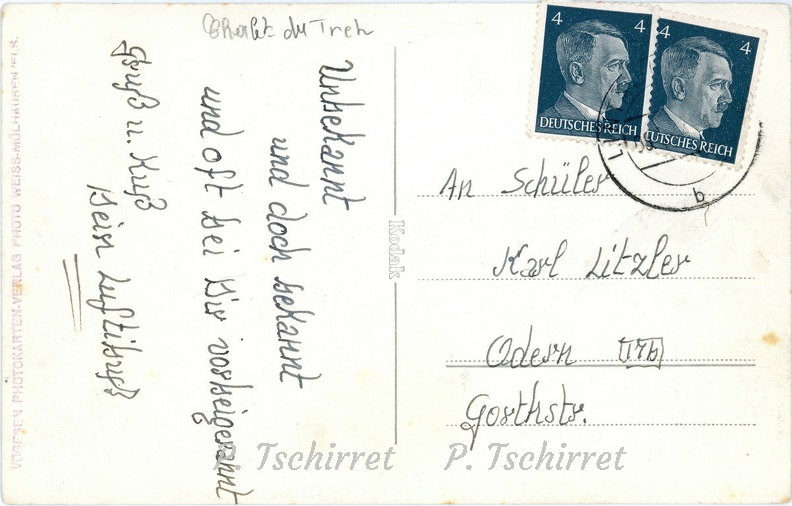 du Treh
Unbekannt
und doch bekannt
und oft bei Dir vorbeigerannt
Gruß u. Kuß
Dein Luftikuß
VOGESEN PHOTOKARTEN-VERLAG PHOTO WEISS-MÜLHAUSEN/ELS.
Kodak
4 4
DEUTSCHES REICH
4 4
DEUTSCHES REICH
b
An Schüler
Karl Litzler
Odern 17b
Gorthstr.
P. Tschirret P. Tschirret